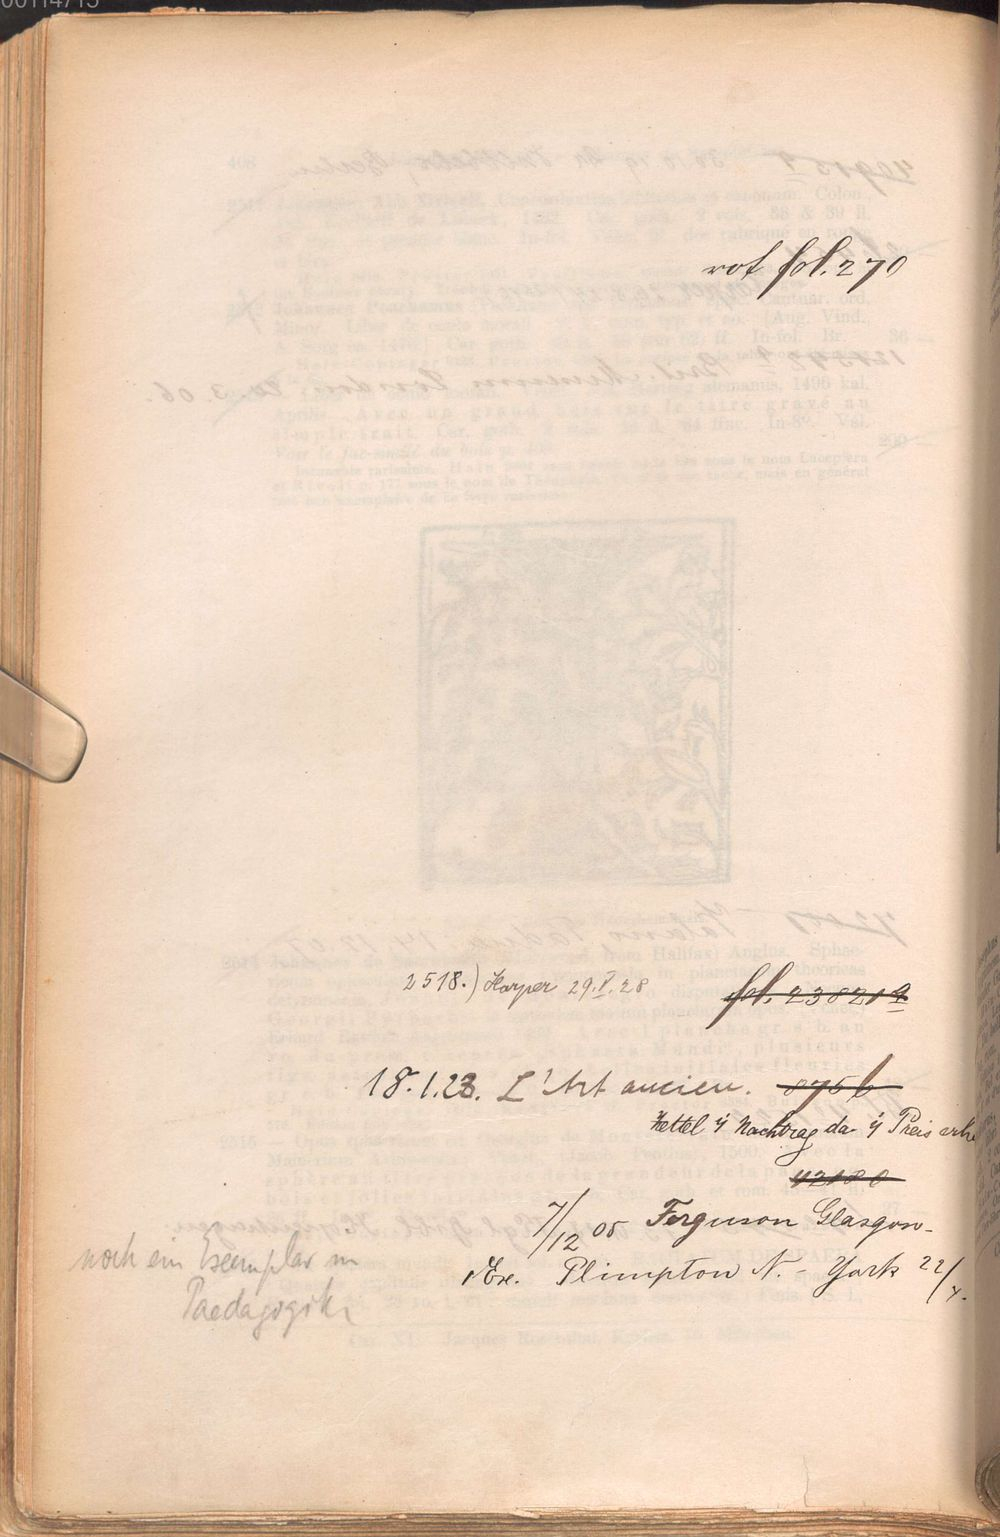 00114715
rot fol. 270
2518.) Harper 29.V.28
fol. 23821a
18.1.23. L'Art ancien. 875b
Zettel Nachtrag da Preis
42180
7/12 05 Ferguson Glasgow.
1 Ex. Plimpton N.-York 22/X.
noch ein Exemplar in
Paedagogik